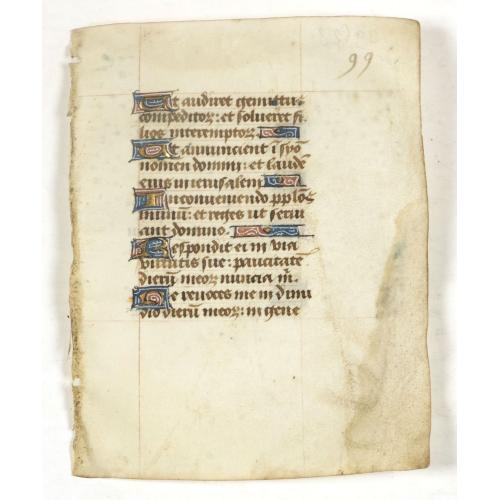 99
Ut audiret gemitus
compeditoꝝ: et solueret fi
lios interemptoꝝ
Ut annuncient ī syō
nomen domini: et laudē
eius in ierusalem
In conueniendo pplōs
in unū: et reges ut serui
ant domino
Respondit ei in via
virtutis sue: paucitatē
dierū meoꝝ nuncia m̄
Ne reuoces me in dimi
dio dierū meoꝝ: in gene